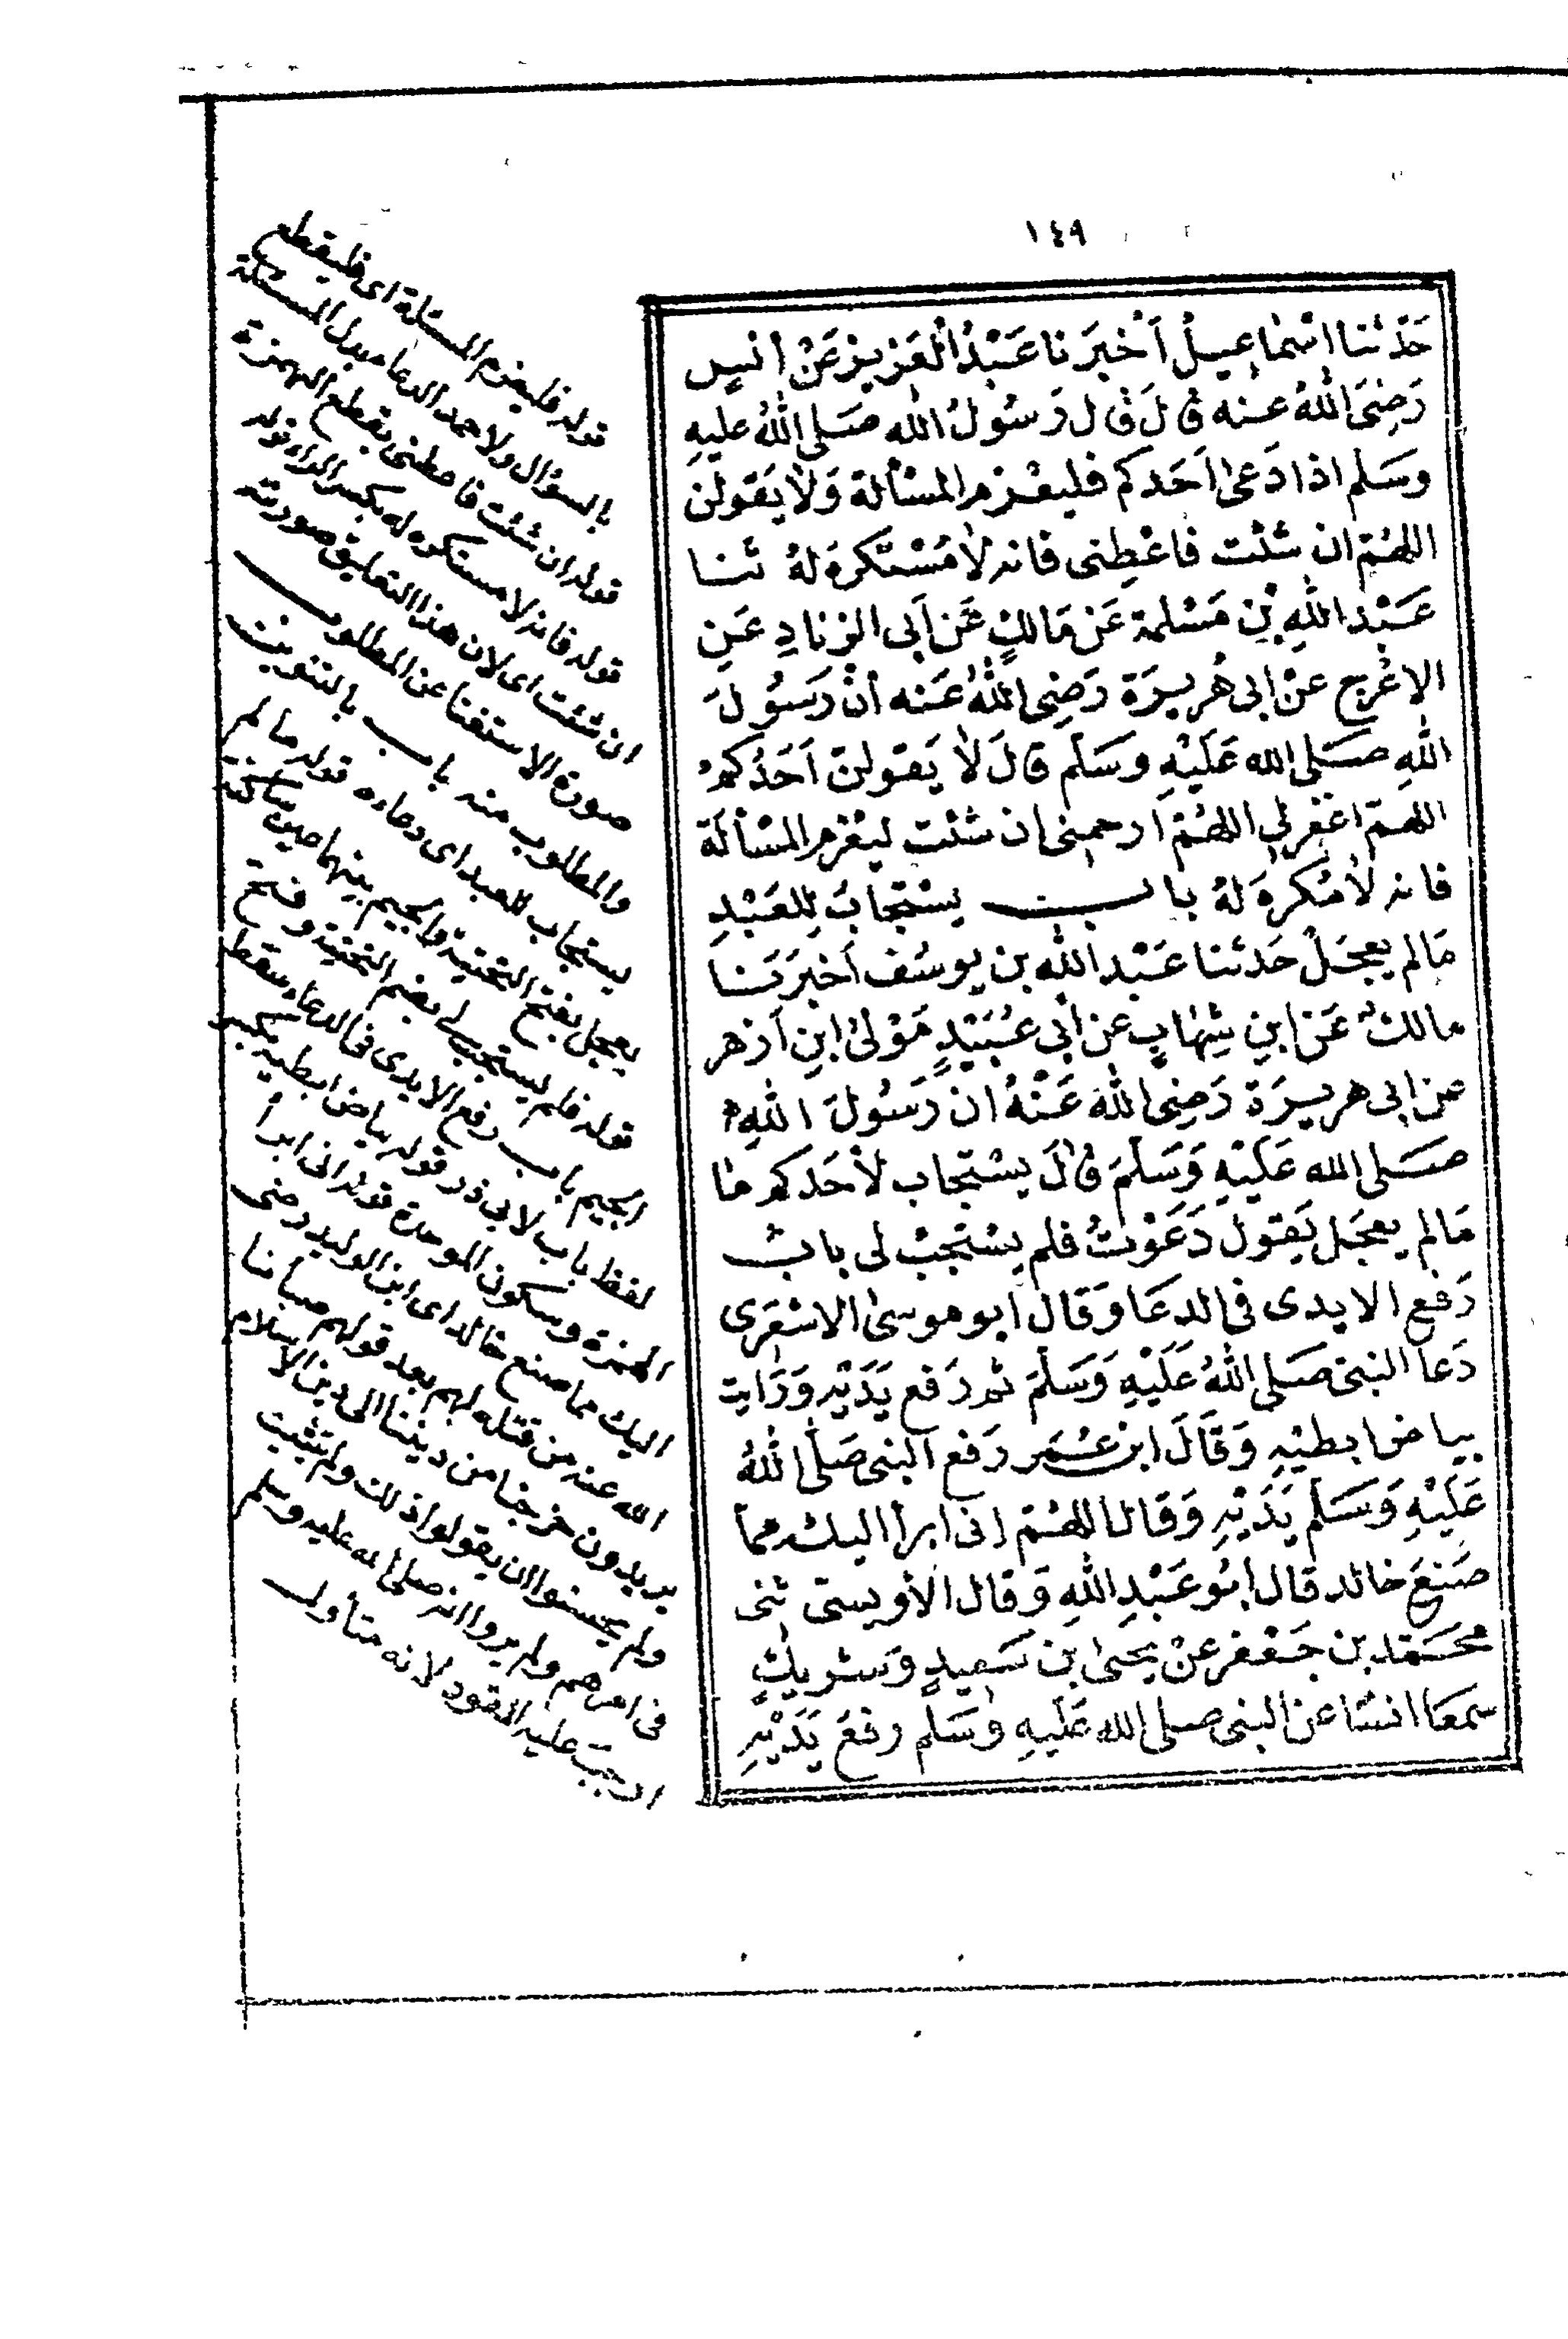 ١٤٩
حَدّثنا اسْماعِيلُ اَخْبَرَنا عَبْدُ العَزيزِ عَنْ انسٍ
رَضِىَ اللهُ عنه قالَ قال رَسُولُ الله صَلى اللهُ عليهِ
وسَلم اذا دَعىٰ اَحَدكم فليعْزم المسْألة وَلا يَقولن
اللهُمّ ان شئت فاعْطِنى فانه لا مُسْتكرهَ لهُ ثنا
عَبْد اللهِ بْنِ مَسْلمة عَن مَالكٍ عَن اَبى الزنادِ عَنِ
الاعْرج عنْ ابى هُريرَة رَضِى اللهُ عَنه انْ رَسُولَ
اللهِ صَلى الله عَلَيْهِ وَسَلم قالَ لا يَقولنّ اَحَدُكمْ
اللهمّ اغفر لى اللهُمّ ارحمنى ان شئت ليَعْزم المسْألَة
فانه لا مُكرهَ لهُ باب يسْتجابُ للعَبْدِ
مَالم يعجَلْ حَدثنا عَبْد الله بن يوسُف اَخبرَنا
مالكٌ عَن ابنِ شِهابٍ عن اَبى عُبَيْدٍ مَوْلىٰ ابنِ اَزهر
عن ابى هريرَة رَضِى اللهُ عَنْهُ ان رَسُولَ اللهِ
صَلى الله عَلَيْهِ وَسَلمَ قالَ يسْتجاب لأحَدكم ما
مَالم يعجَل يَقول دَعَوْتُ فلم يسْتجبْ لى بابُ
رَفع الايدى فى الدعَا وَقال ابو موسىٰ الاشعَرى
دَعا النبى صَلى اللهُ عَلَيْهِ وَسَلمَ ثم رَفع يَدَيْهِ وَرَايت
بياض ابطيْهِ وَقالَ ابن عُمَر رَفع النبى صَلى اللهُ
عَلَيْهِ وَسَلم يَدَيْهِ وَقال اللهُمّ انى ابرأ اليك مما
صَنعَ خالد قال ابُو عَبْدِ اللهِ وَقال الأويسى ثنى
محَمّد بن جَعْفر عنْ يحيىٰ بن سَعيدٍ وَشريكٍ
سمعَا انسًا عن النبى صلى الله عَلَيهِ وَسَلم رفعَ يَدَيْهِ
قوله فليعزم المسئلة اى فليقطع
بالسؤال ولاحمد الدعا مبدل المسئلة
قوله ان شئت فاعطنى بقطع الهمزة
قوله فانه لا مستكره له بكسر الراء قوله
ان شئت اى لان هذا التعليق صورته
صورة الاستغنا عن المطلوب
والمطلوب منه باب بالتنوين
يستجاب للعبد اى دعاءه قوله ما لم
يعجل بفتح التحتية والجيم بينهما عين ساكنة
قوله فلم يستجب لى بضم التحتية وفتح
الجيم باب رفع الايدى فى الدعاء سقط
لفظ باب لابى ذر قوله بياض ابطيه بكسر
الهمزة وسكون الموحدة قوله انى ابرأ
اليك مما صنع خالد اى ابن الوليد رضى
الله عنه من قتله لهم بعد قولهم صبأنا
يريدون خرجنا من ديننا الى دين الاسلام
ولم يحسنوا ان يقولوا ذلك ولم يتثبت
فى امرهم ولم يروا انه صلى الله عليه وسلم
اوجب عليه القود لانه متأول